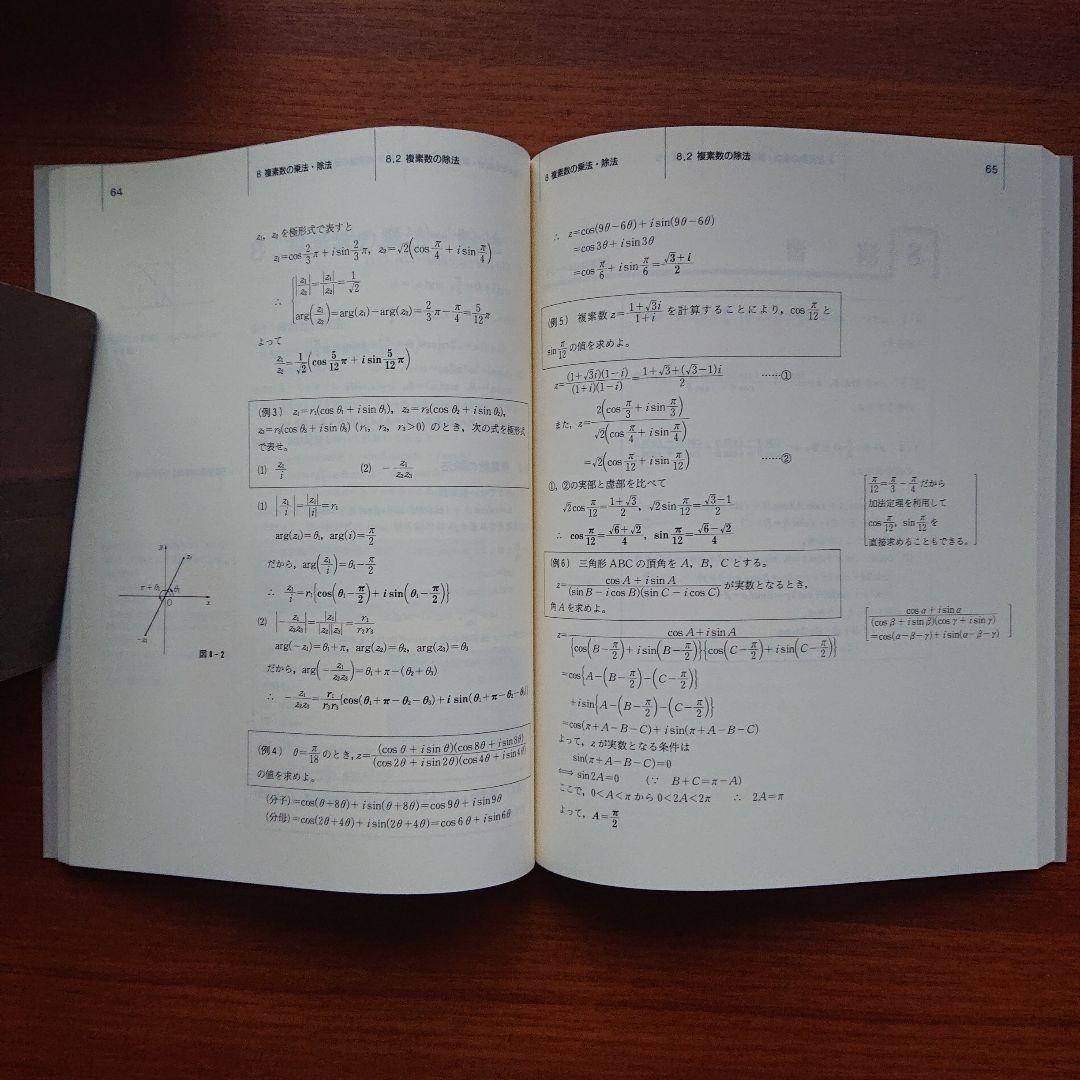 64
8 複素数の乗法・除法
8.2 複素数の除法
z₁, z₂ を極形式で表すと
z₁=cos 2/3 π+i sin 2/3 π, z₂=√2(cos π/4 + i sin π/4)
∴ {|z₁/z₂|=|z₁|/|z₂|=1/√2
arg(z₁/z₂)=arg(z₁)−arg(z₂)=2/3 π−π/4=5/12 π
よって
z₁/z₂=1/√2(cos 5/12 π+i sin 5/12 π)
(例3) z₁=r₁(cos θ₁+i sin θ₁), z₂=r₂(cos θ₂+i sin θ₂),
z₃=r₃(cos θ₃+i sin θ₃) (r₁, r₂, r₃>0) のとき,次の式を極形式
で表せ。
(1) z₁/i (2) −z₁/z₂z₃
(1) |z₁/i|=|z₁|/|i|=r₁
arg(z₁)=θ₁, arg(i)=π/2
だから, arg(z₁/i)=θ₁−π/2
∴ z₁/i=r₁{cos(θ₁−π/2)+i sin(θ₁−π/2)}
(2) |−z₁/z₂z₃|=|z₁|/|z₂||z₃|=r₁/r₂r₃
arg(−z₁)=θ₁+π, arg(z₂)=θ₂, arg(z₃)=θ₃
だから, arg(−z₁/z₂z₃)=θ₁+π−(θ₂+θ₃)
∴ −z₁/z₂z₃=r₁/r₂r₃{cos(θ₁+π−θ₂−θ₃)+i sin(θ₁+π−θ₂−θ₃)}
z₁
π+θ₁
θ₁
O
x
−z₁
図8-2
(例4) θ=π/18 のとき, z=(cos θ+i sin θ)(cos 8θ+i sin 8θ)/(cos 2θ+i sin 2θ)(cos 4θ+i sin 4θ)
の値を求めよ。
(分子)=cos(θ+8θ)+i sin(θ+8θ)=cos 9θ+i sin 9θ
(分母)=cos(2θ+4θ)+i sin(2θ+4θ)=cos 6θ+i sin 6θ
8 複素数の乗法・除法
8.2 複素数の除法
65
∴ z=cos(9θ−6θ)+i sin(9θ−6θ)
=cos 3θ+i sin 3θ
=cos π/6+i sin π/6=(√3+i)/2
(例5) 複素数 z=(1+√3i)/(1+i) を計算することにより, cos π/12 と
sin π/12 の値を求めよ。
z=(1+√3i)(1−i)/(1+i)(1−i)=(1+√3+(√3−1)i)/2 ……①
また, z=2(cos π/3+i sin π/3)/√2(cos π/4+i sin π/4)
=√2(cos π/12+i sin π/12) ……②
①, ②の実部と虚部を比べて
√2 cos π/12=(1+√3)/2, √2 sin π/12=(√3−1)/2
∴ cos π/12=(√6+√2)/4, sin π/12=(√6−√2)/4
[π/12=π/3−π/4 だから
加法定理を利用して
cos π/12, sin π/12 を
直接求めることもできる。]
(例6) 三角形 ABC の頂角を A, B, C とする。
z=(cos A+i sin A)/(sin B−i cos B)(sin C−i cos C) が実数となるとき,
角 A を求めよ。
[(cos α+i sin α)/(cos β+i sin β)(cos γ+i sin γ)
=cos(α−β−γ)+i sin(α−β−γ)]
z=(cos A+i sin A)/{cos(B−π/2)+i sin(B−π/2)}{cos(C−π/2)+i sin(C−π/2)}
=cos{A−(B−π/2)−(C−π/2)}
+i sin{A−(B−π/2)−(C−π/2)}
=cos(π+A−B−C)+i sin(π+A−B−C)
よって, z が実数となる条件は
sin(π+A−B−C)=0
⟺ sin 2A=0 (∵ B+C=π−A)
ここで, 0<A<π から 0<2A<2π ∴ 2A=π
よって, A=π/2